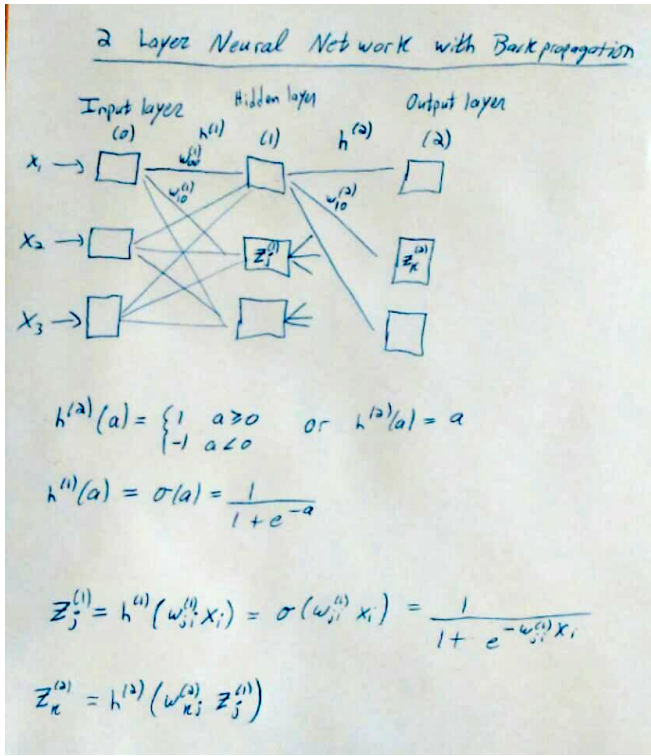 2 Layer Neural Network with Backpropagation
Input layer Hidden layer Output layer
(0) h⁽¹⁾ (1) h⁽²⁾ (2)
x₁ → w₀₀⁽¹⁾
w₁₀⁽¹⁾ w₁₀⁽²⁾
x₂ → z_j⁽¹⁾ z_k⁽²⁾
x₃ →
h⁽²⁾(a) = { 1 a≥0 or h⁽²⁾(a) = a
-1 a<0
h⁽¹⁾(a) = σ(a) = 1 / (1 + e^(-a))
z_j⁽¹⁾ = h⁽¹⁾(w_ji⁽¹⁾ x_i) = σ(w_ji⁽¹⁾ x_i) = 1 / (1 + e^(-w_ji⁽¹⁾ x_i))
z_k⁽²⁾ = h⁽²⁾(w_kj⁽²⁾ z_j⁽¹⁾)